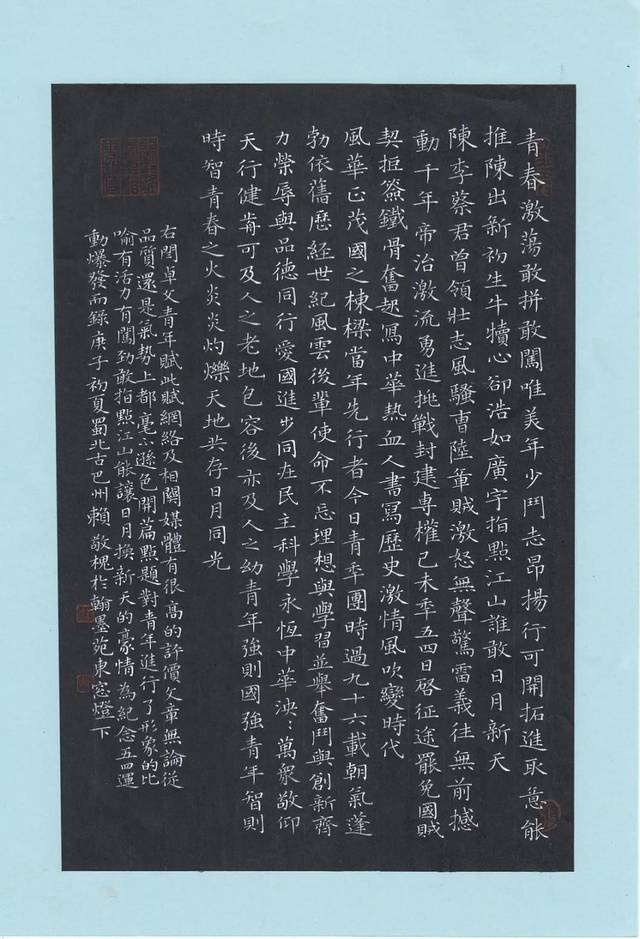 青春激蕩敢拼敢闖唯美年少鬥志昂揚行可開拓進取意能
推陳出新初生牛犢心卻浩如廣宇指點江山誰敢日月新天
陳李蔡君曾領壯志風騷曹陸章賊激怒無聲驚雷義往無前撼
動千年帝治激流勇進挑戰封建專權己未年五四日啓征途罷免國賊
契拒簽鐵骨奮起寫中華熱血人書寫歷史激情風吹變時代
風華正茂國之棟樑當年先行者今日青年團時過九十六載朝氣蓬
勃依舊歷經世紀風雲後輩使命不忘理想與學習並舉奮鬥與創新齊
力榮辱與品德同行愛國進步同在民主科學永恆中華泱泱萬衆敬仰
天行健肯可及人之老地包容後亦及人之幼青年強則國強青年智則
時智青春之火炎炎灼爍天地共存日月同光
右閱卓文青年賦此賦網絡及相關媒體有很高的評價文章無論從
品質還是氣勢上都毫不遜色開篇點題對青年進行了形象的比
喻有活力有闖勁敢指點江山能讓日月換新天的豪情為紀念五四運
動爆發而錄庚子初夏蜀北古巴州賴敬槐於翰墨苑東窗燈下